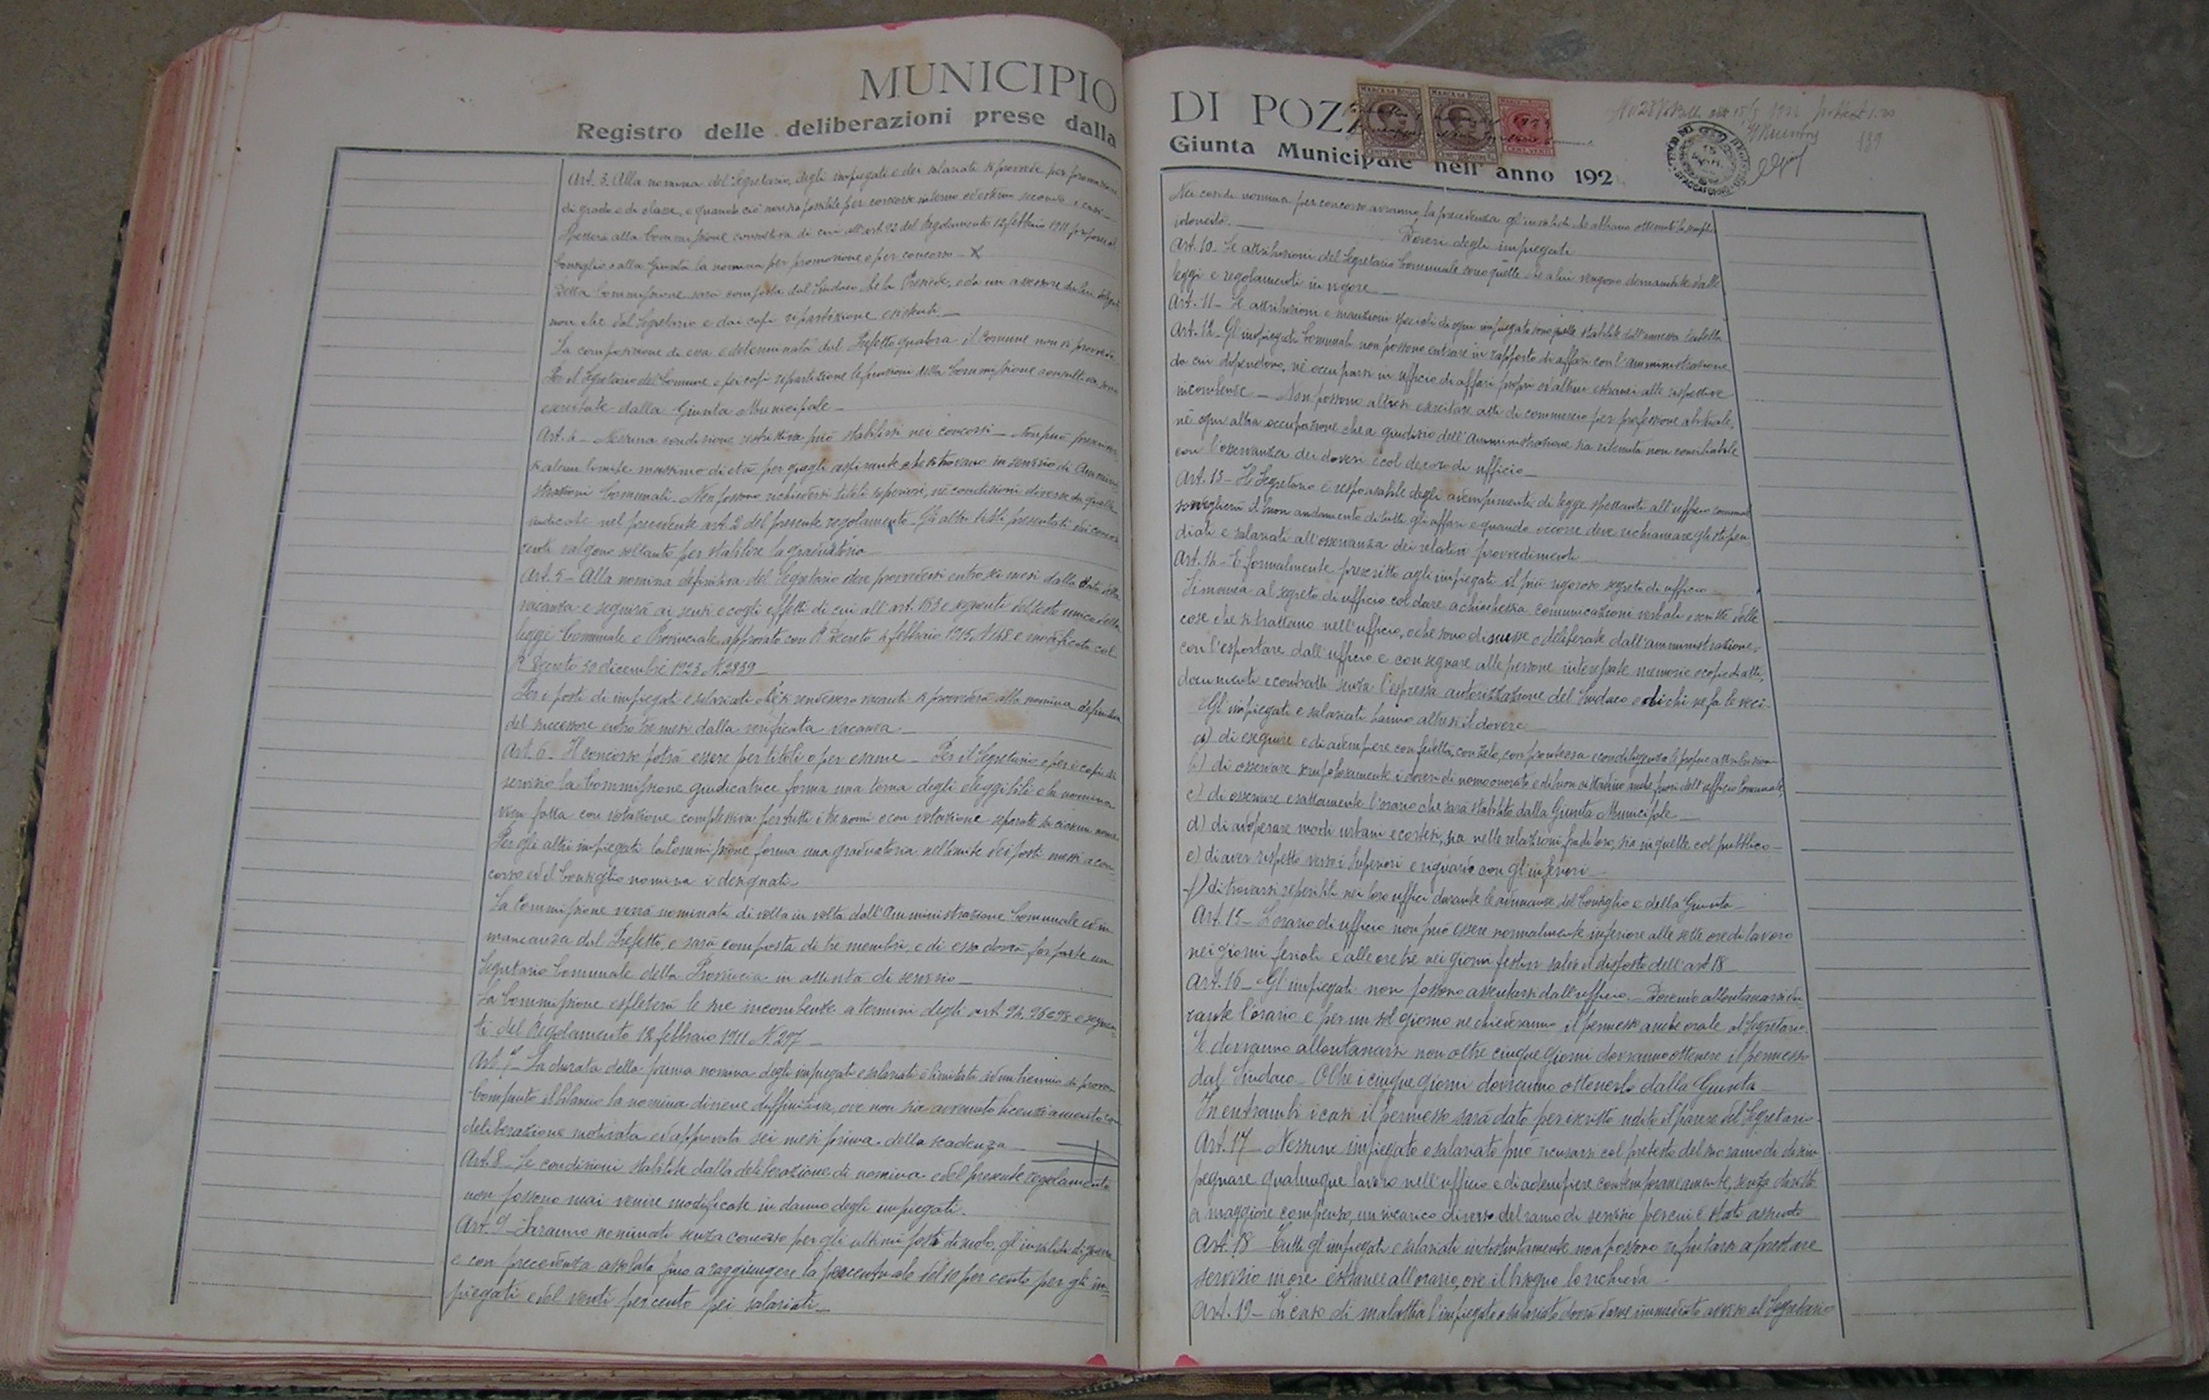 MUNICIPIO
Registro delle deliberazioni prese dalla
Art. 3. Alla nomina del Segretario, degli impiegati e dei salariati si provvede per promozione
di grado e di classe, e quando ciò non sia possibile per concorso interno od esterno secondo i casi
Spetterà alla Commissione consultiva di cui all'art. 93 del Regolamento 12 febbraio 1911 proporre al
Consiglio o alla Giunta la nomina per promozione o per concorso X
Detta Commissione sarà composta dal Sindaco che la Presiede, e da un assessore da lui delegato
non che dal Segretario e dai capi ripartizione esistenti.
La composizione di essa è determinata dal Prefetto qualora il Comune non vi provveda
Per il Segretario del Comune e pei capi ripartizione le funzioni della Commissione consultiva sono
esercitate dalla Giunta Municipale
Art. 4 - Nessuna condizione restrittiva può stabilirsi nei concorsi - Non può prescriver
si alcun limite massimo di età per quegli aspiranti che si trovano in servizio di Ammini
strazioni Comunali. Non possono richiedersi titoli superiori, nè condizioni diverse da quelle
indicate nel precedente art. 2 del presente regolamento. Gli altri titoli presentati dai concor
renti valgono soltanto per stabilire la graduatoria
Art. 5 - Alla nomina definitiva del Segretario deve provvedersi entro sei mesi dalla data della
vacanza e seguirà ai sensi e cogli effetti di cui all'art. 163 e seguenti del testo unico della
legge Comunale e Provinciale approvato con R. Decreto 4 febbraio 1915, N. 148 e modificato col
R. Decreto 30 dicembre 1923 N. 2839
Per i posti di impiegati e salariati che si rendessero vacanti si provvederà alla nomina definitiva
del successore entro tre mesi dalla verificata vacanza.
Art. 6 - Il concorso potrà essere per titoli o per esame - Per il Segretario e per i capi di
servizio la Commissione giudicatrice forma una terna degli eleggibili e la nomina
viene fatta con votazione complessiva per tutti i tre nomi e con votazione separata su ciascun nome
Per gli altri impiegati la Commissione forma una graduatoria nel limite dei posti messi a con
corso ed il Consiglio nomina i designati
La Commissione verrà nominata di volta in volta dall'Amministrazione Comunale ed in
mancanza dal Prefetto, e sarà composta di tre membri e di essa dovrà far parte un
Segretario Comunale della Provincia in attività di servizio
La Commissione espleterà le sue incombenze a termini degli art. 94, 96 e 98 e seguen
ti del Regolamento 12 febbraio 1911 N. 297
Art. 7 - La durata della prima nomina degli impiegati e salariati è limitata ad un biennio di prova
Compiuto il biennio la nomina diviene diffinitiva, ove non sia avvenuto licenziamento con
deliberazione motivata ed approvata sei mesi prima della scadenza
Art. 8 - Le condizioni stabilite dalla deliberazione di nomina e del presente regolamento
non possono mai venire modificate in danno degli impiegati.
Art. 9 - Saranno nominati senza concorso per gli ultimi posti di ruolo, gl'invalidi di guerra
e con precedenza assoluta fino a raggiungere la percentuale del 10 per cento per gli im=
piegati e del venti per cento pei salariati
DI POZZ
Giunta Municipale nell'anno 192
MARCA DA BOLLO
MARCA DA BOLLO
189
Nei casi di nomina per concorso avranno la precedenza gl'invalidi che abbiano ottenuto la semplice
idoneità.
Doveri degli impiegati
Art. 10 - Le attribuzioni del Segretario Comunale sono quelle che a lui vengono demandate dalle
leggi e regolamenti in vigore
Art. 11 - Le attribuzioni e mansioni speciali di ogni impiegato sono quelle stabilite dall'annessa tabella
Art. 12 - Gl'impiegati Comunali non possono entrare in rapporto di affari con l'amministrazione
da cui dipendono, nè occuparsi in ufficio di affari propri od altrui estranei alle rispettive
incombenze - Non possono altresì esercitare atti di commercio per professione abituale,
nè ogni altra occupazione che a giudizio dell'Amministrazione sia ritenuta non conciliabile
con l'osservanza dei doveri e col decoro di ufficio
Art. 13 - Il Segretario è responsabile degli adempimenti di legge spettanti all'ufficio comunale
sorveglierà il buon andamento di tutti gli affari e quando occorre deve richiamare gli stipen
diati e salariati all'osservanza dei relativi provvedimenti
Art. 14 - È formalmente prescritto agli impiegati il più rigoroso segreto di ufficio
Si manca al segreto di ufficio col dare a chicchessia comunicazioni verbali o scritte delle
cose che si trattano nell'ufficio, o che sono discusse o deliberate dall'amministrazione,
con l'esportare dall'ufficio e consegnare alle persone interessate memorie o copie di atti,
documenti e contratti senza l'espressa autorizzazione del Sindaco o di chi ne fa le veci
Gl'impiegati e salariati hanno altresì il dovere
a) di eseguire e di adempiere con fedeltà, con zelo, con prontezza e con diligenza le proprie attribuzioni
b) di osservare scrupolosamente i doveri di uomo onorato e di buon cittadino anche fuori dell'ufficio Comunale,
c) di osservare esattamente l'orario che sarà stabilito dalla Giunta Municipale
d) di adoperare modi urbani e cortesi, sia nelle relazioni fra di loro, sia in quelle col pubblico
e) di aver rispetto verso i Superiori e riguardo con gl'inferiori
f) di trovarsi reperibili nei loro uffici durante le adunanze del Consiglio e della Giunta
Art. 15 - L'orario di ufficio non può essere normalmente inferiore alle sette ore di lavoro
nei giorni feriali e alle ore tre nei giorni festivi salvo il disposto dell'art. 18
Art. 16 - Gl'impiegati non possono assentarsi dall'ufficio. - Dovendo allontanarsi du
rante l'orario e per un sol giorno ne chiederanno il permesso anche orale al Segretario.
Se dovranno allontanarsi non oltre cinque giorni dovranno ottenere il permesso
dal Sindaco - Oltre i cinque giorni dovranno ottenerlo dalla Giunta
In entrambi i casi il permesso sarà dato per iscritto udito il parere del Segretario
Art. 17 - Nessuno impiegato o salariato può ricusarsi col pretesto del suo ramo di disim
pegnare qualunque lavoro nell'ufficio e di adempiere contemporaneamente, senza diritto
a maggiore compenso, un incarico diverso del ramo di servizio per cui è stato assunto
Art. 18 - Tutti gl'impiegati e salariati indistintamente non possono rifiutarsi a prestare
servizio in ore estranee all'orario, ove il bisogno lo richieda.
Art. 19 - In caso di malattia l'impiegato o salariato dovrà darne immediato avviso al Segretario